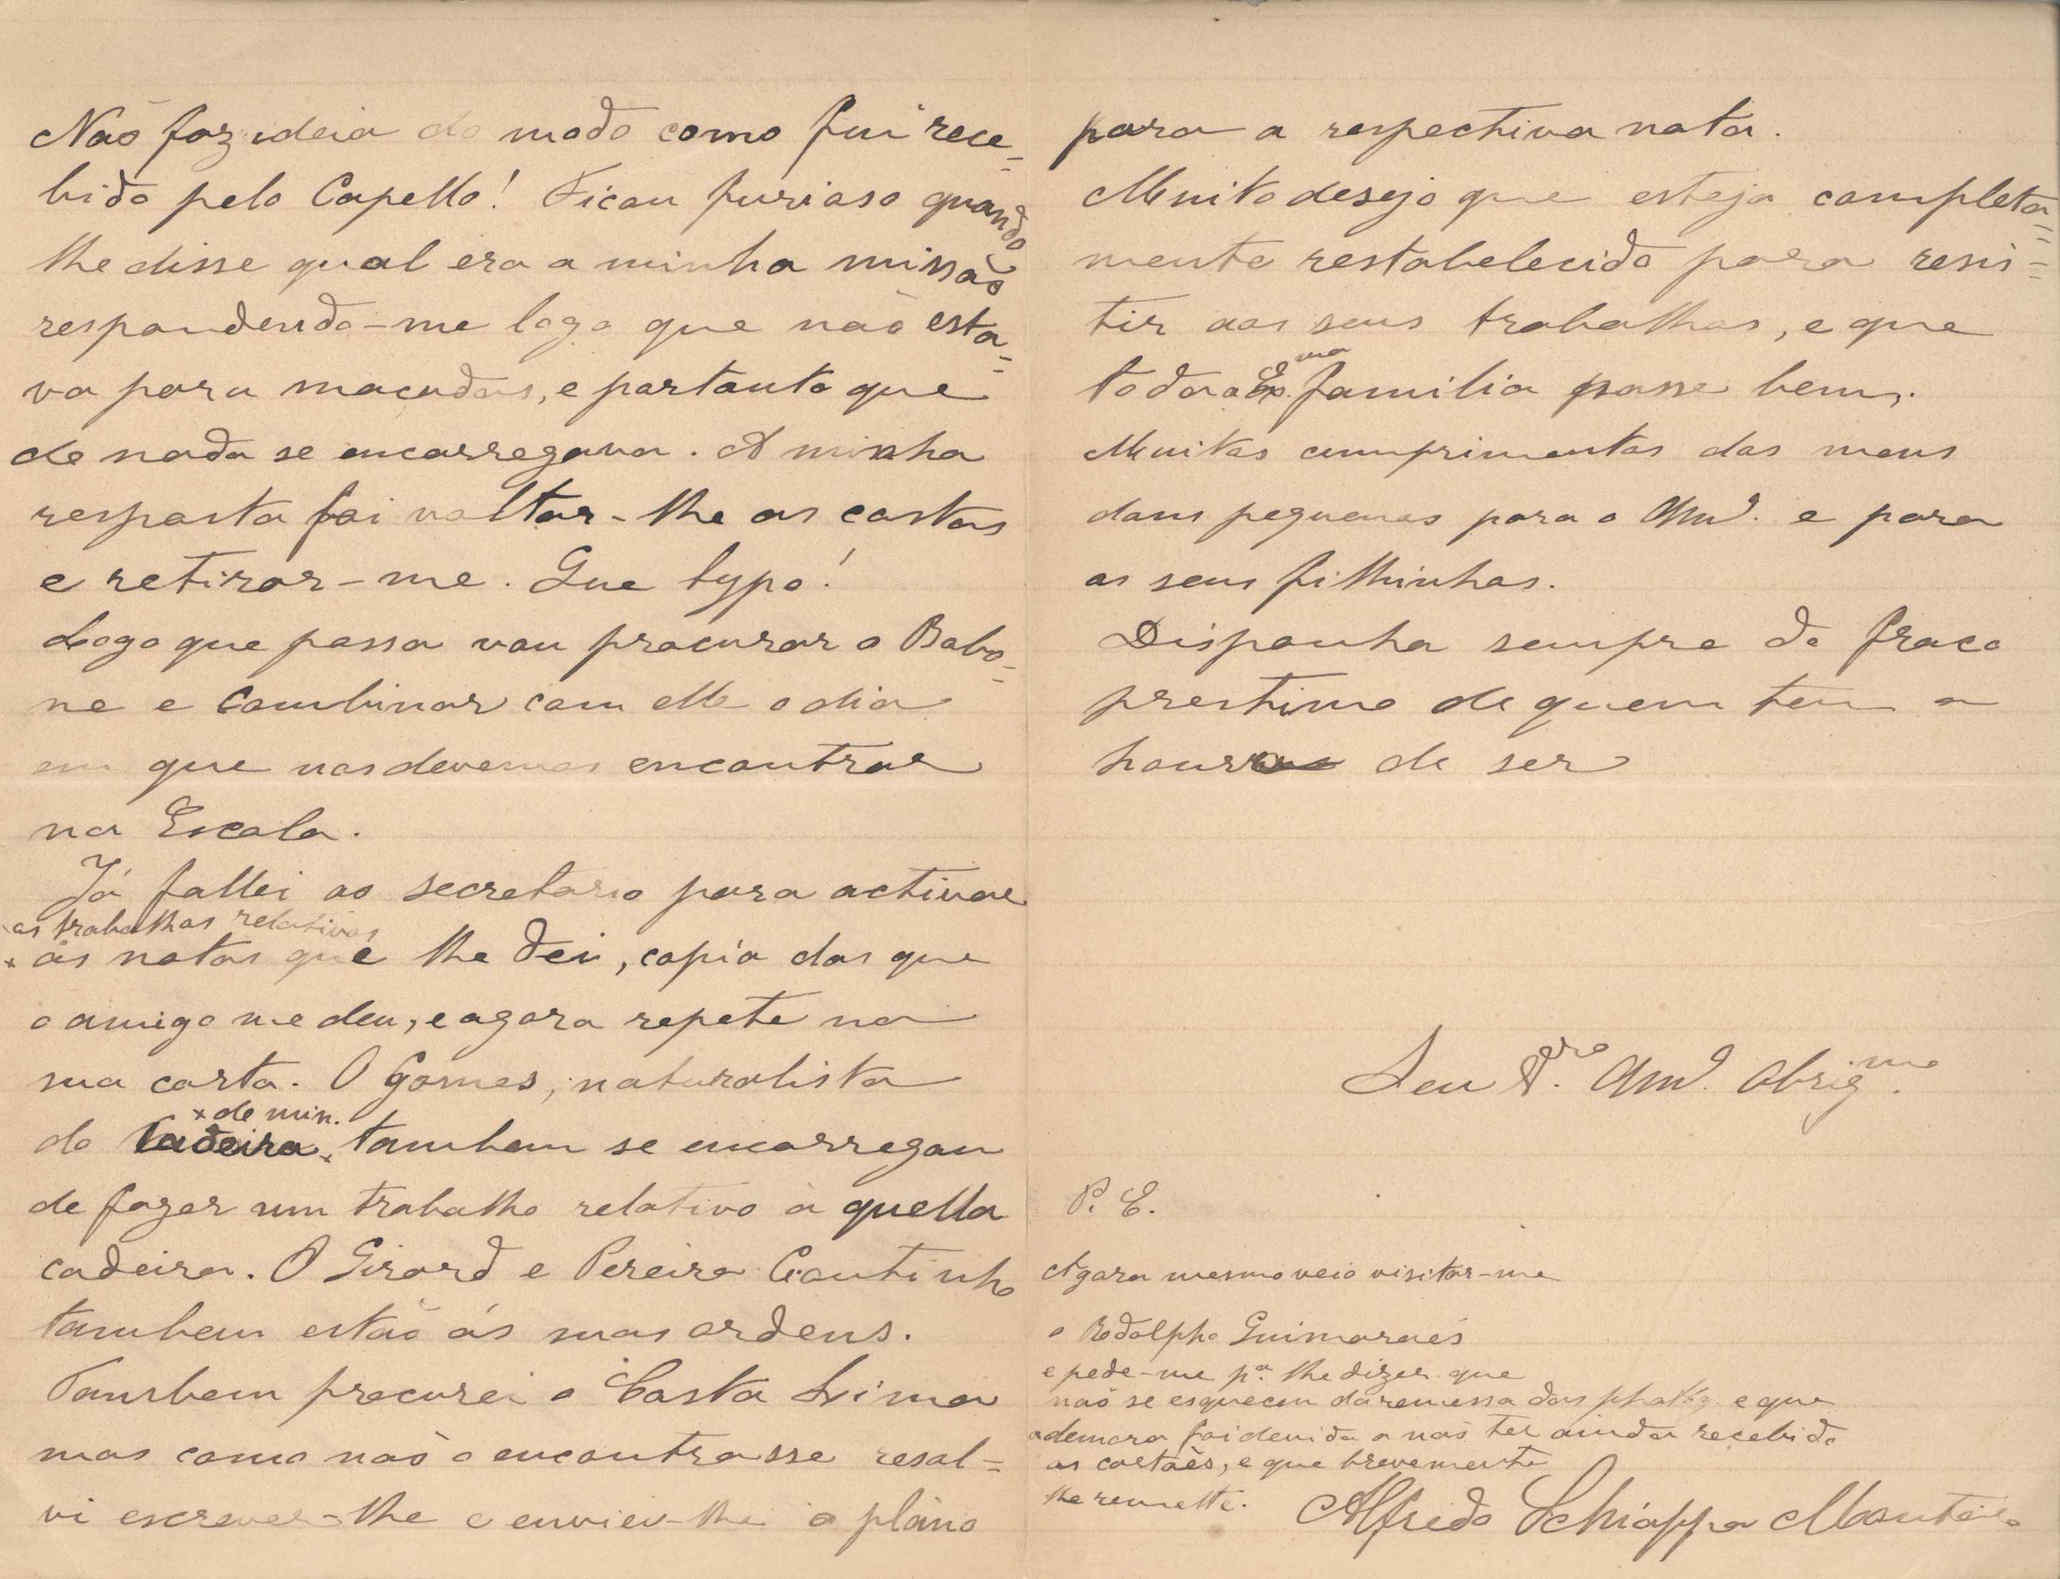 Não faz ideia do modo como fui rece-
bido pelo Capello! Ficou furioso quando
lhe disse qual era a minha missão
respondendo-me logo que não esta-
va para maçadas, e portanto que
de nada se encarregava. A minha
resposta foi voltar-lhe as costas
e retirar-me. Que typo!
Logo que possa vou procurar o Babo-
ne e combinar com elle o dia
em que nos devemos encontrar
na Escola.
Já fallei ao secretario para activar
os trabalhos relativos
ás notas que lhe dei, copia das que
o amigo me deu, e agora repete na
sua carta. O Gomes, naturalista
de min.
da Cadeira, tambem se encarregou
de fazer um trabalho relativo á quella
cadeira. O Girard e Pereira Coutinho
tambem estão ás suas ordens.
Tambem procurei o Costa Lima
mas como não o encontrasse resol-
vi escrever-lhe e enviei-lhe o plano
para a respectiva nota.
Muito desejo que esteja completa-
mente restabelecido para resis-
tir aos seus trabalhos, e que
toda a Exma familia passe bem.
Muitos cumprimentos dos meus
dous pequenos para o Amo. e para
os seus filhinhos.
Disponha sempre do fraco
prestimo de quem tem a
honra de ser
Seu Amo. Obrigmo.
P. E.
Agora mesmo veio visitar-me
o Rodolpho Guimaraẽs
e pede-me pa. lhe dizer que
não se esqueceu da remessa das phot. e que
a demora foi devida a não ter ainda recebido
os cartões, e que brevemente
lhe remette.
Alfredo Schiappa Monteiro